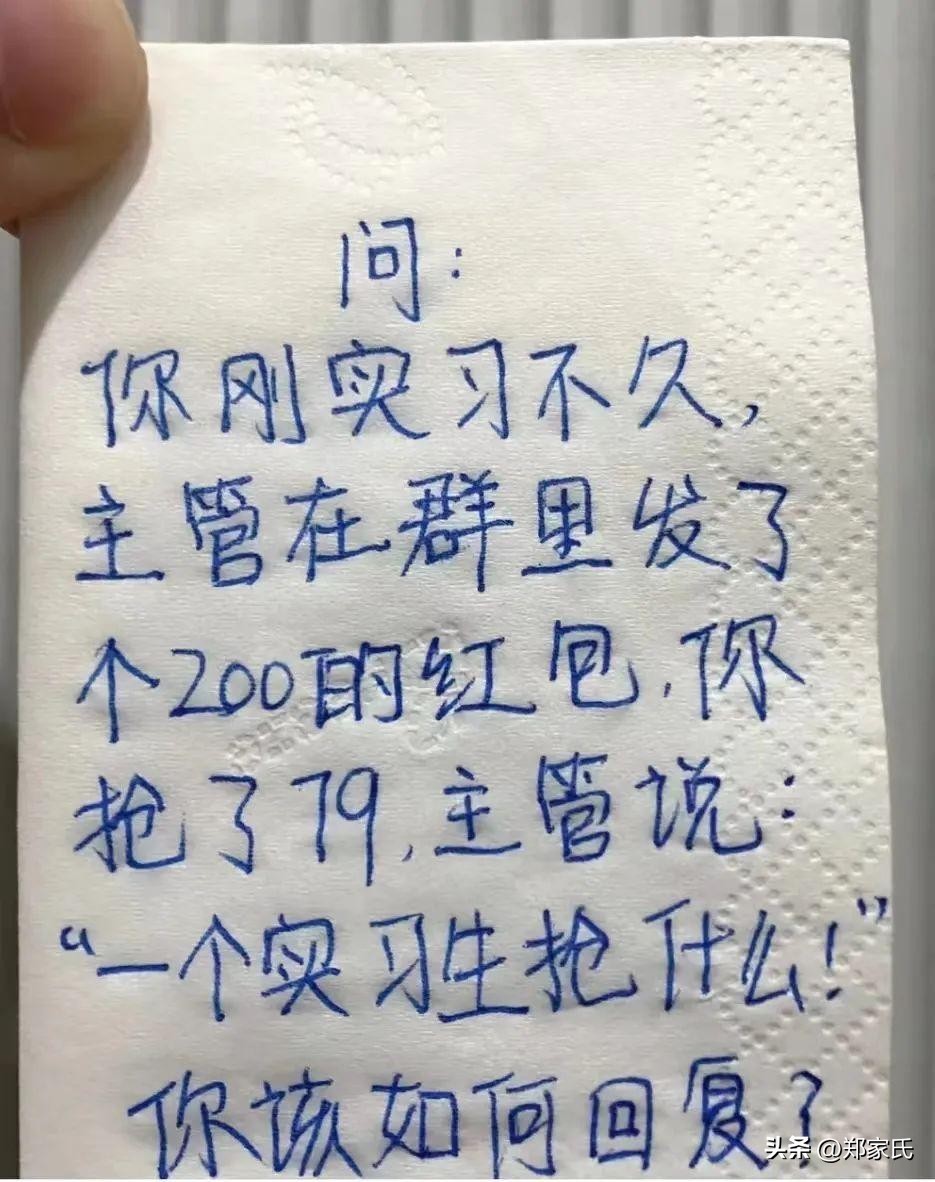 问:
你刚实习不久,
主管在群里发了
个200的红包,你
抢了79,主管说:
“一个实习生抢什么!”
你该如何回复?
头条 @郑家氏